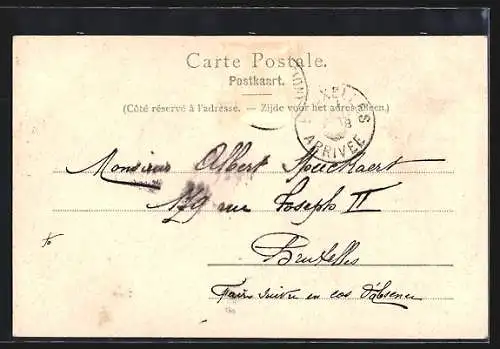 Carte Postale.
Postkaart.
(Côté réservé à l'adresse. — Zijde voor het adres alleen.)
ARRIVÉE
Monsieur Albert
179 rue Joseph II
Bruxelles
Faire suivre en cas d'absence